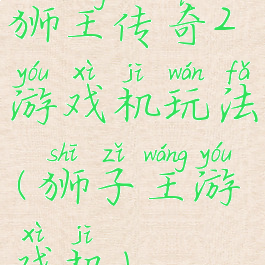 狮王传奇2
yóu xì jī wán fǎ
游戏机玩法
shī zǐ wáng yóu
(狮子王游
xì jī
戏机)